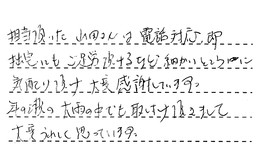 担当頂いた山田さんは電話対応、即
拙宅にもご足労頂けるなど細かいところに
気配り頂き大変感謝しています。
年の秋の大雨の中でも取付け頂きまして
大変うれしく思っています。